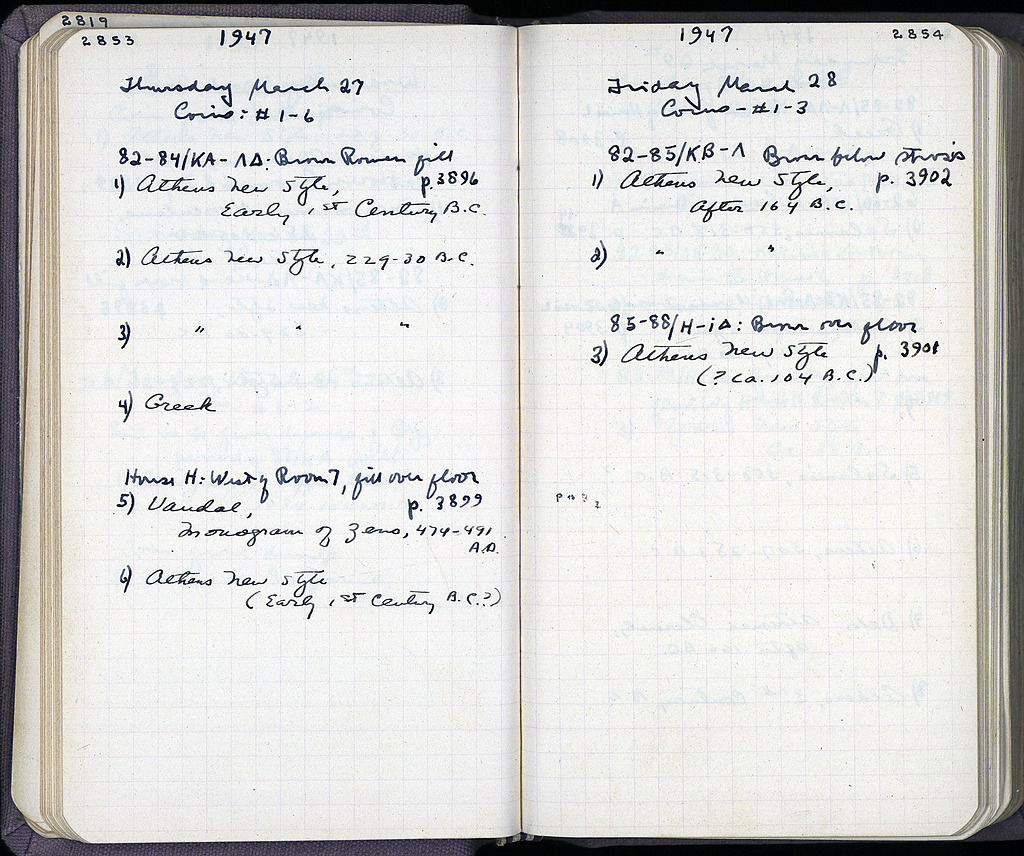 2819
2853
1947
Thursday March 27
Coins: #1-6
82-84/KA-ΛΔ: Brown Roman fill
1) Athens New Style, p. 3896
Early 1st Century B.C.
2) Athens New Style, 229-30 B.C.
3) " " "
4) Greek
House H: West of Room 7, fill over floor
5) Vandal, p. 3899
Monogram of Zeno, 474-491
A.D.
6) Athens New Style
(Early 1st Century B.C.?)
1947
2854
Friday March 28
Coins - #1-3
82-85/KB-Λ Brown below strosis
1) Athens New Style, p. 3902
After 164 B.C.
2) " "
85-88/H-ιΔ: Brown over floor
3) Athens New Style p. 3901
(? ca. 104 B.C.)